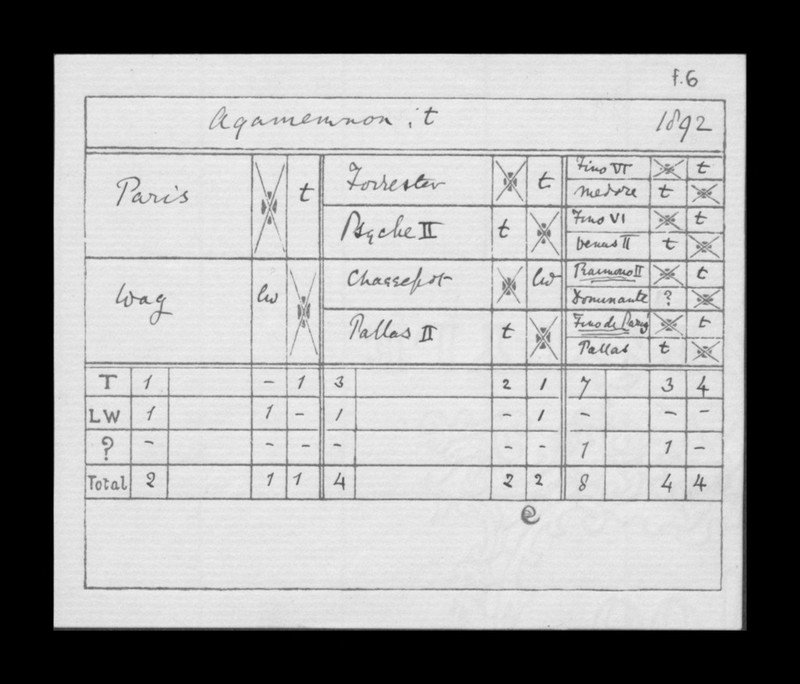 f.6
Agamemnon : t 1892
Paris t
Forrester t
Fino VI t
Medore t
Psyche II t
Fino VI t
Venus II t
Wag lw
Chassepot lw
II t
Dominante ?
Pallas II t
Fino de Paris t
Pallas t
T 1 - 1 3 2 1 7 3 4
LW 1 1 - 1 - 1 - - -
? - - - - - - 1 1 -
Total 2 1 1 4 2 2 8 4 4
e